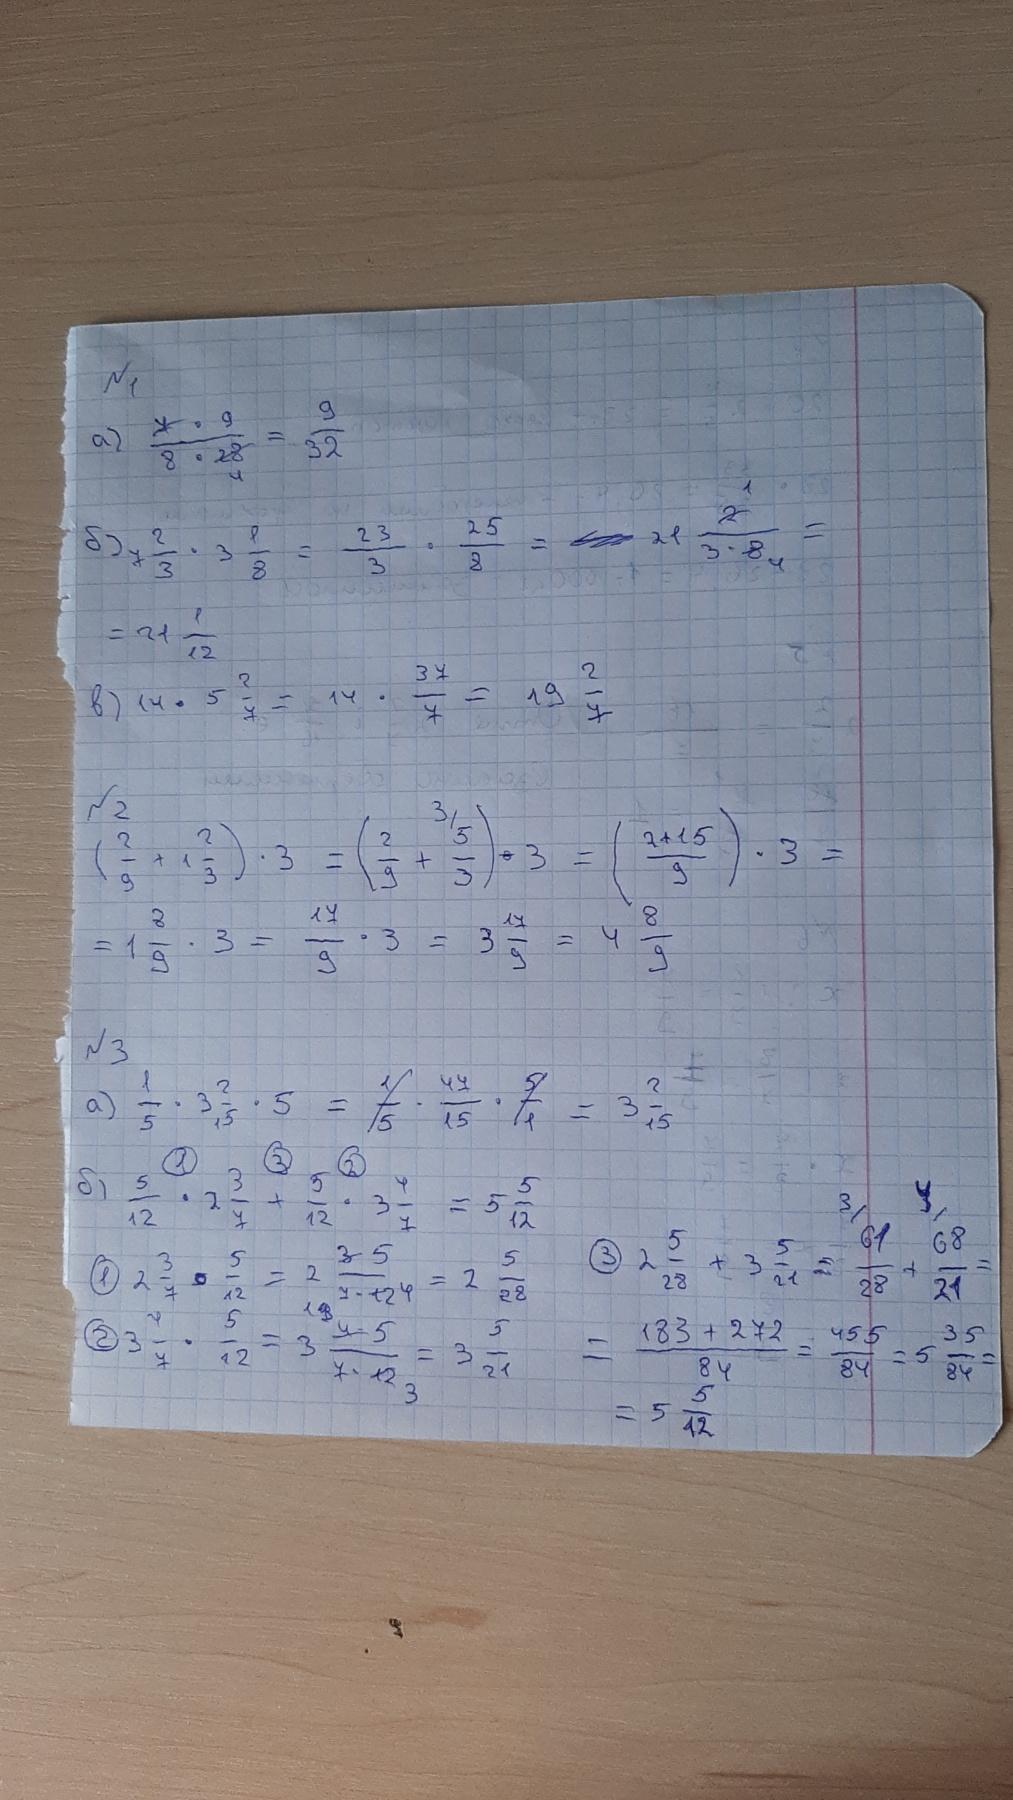 №1
а) 7·9/8·28 4 = 9/32
б) 7 2/3 · 3 1/8 = 23/3 · 25/8 = 21 2/3·8 1 4 =
= 21 1/12
в) 14 · 5 2/7 = 14 · 37/7 = 19 2/7
№2
(2/9 + 1 2/3) · 3 = (2/9 + 5/3 3/) · 3 = (2+15/9) · 3 =
= 1 8/9 · 3 = 17/9 · 3 = 3 17/9 = 4 8/9
№3
а) 1/5 · 3 2/15 · 5 = 1/5 · 47/15 · 5/1 = 3 2/15
б) 5/12 · 2 3/7 + 5/12 · 3 4/7 = 5 5/12
① ③ ②
① 2 3/7 · 5/12 = 2 3·5/7·12 4 = 2 5/28
② 3 4/7 · 5/12 = 3 4·5/7·12 3 = 3 5/21
③ 2 5/28 + 3 5/21 = 61/28 3/ + 68/21 4/ =
= 183+272/84 = 455/84 = 5 35/84 =
= 5 5/12